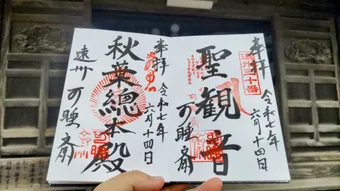 奉拝
聖観音
令和七年
六月十四日
可睡斎
奉拝
秋葉總本殿
令和七年
六月十四日
遠州
可睡斎